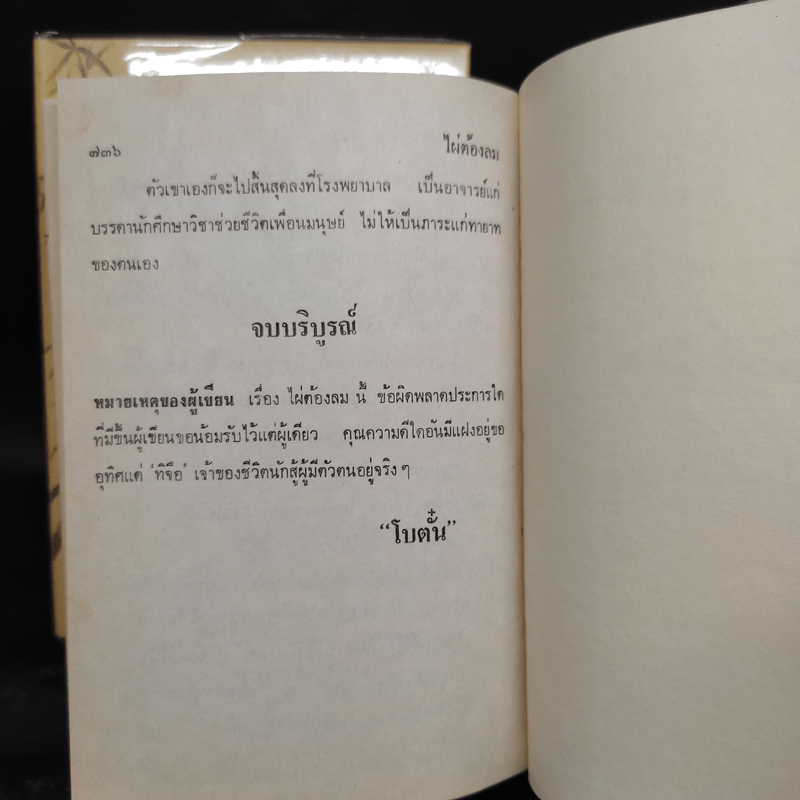 ๗๓๖ ไผ่ต้องลม
ตัวเขาเองก็จะไปสิ้นสุดลงที่โรงพยาบาล เป็นอาจารย์แก่
บรรดานักศึกษาวิชาช่วยชีวิตเพื่อนมนุษย์ ไม่ให้เป็นภาระแก่ทายาท
ของตนเอง
จบบริบูรณ์
หมายเหตุของผู้เขียน เรื่อง ไผ่ต้องลม นี้ ข้อผิดพลาดประการใด
ที่มีขึ้นผู้เขียนขอน้อมรับไว้แต่ผู้เดียว คุณความดีใดอันมีแฝงอยู่ขอ
อุทิศแด่ 'ทิจือ' เจ้าของชีวิตนักสู้ผู้มีตัวตนอยู่จริง ๆ
“โบตั๋น”